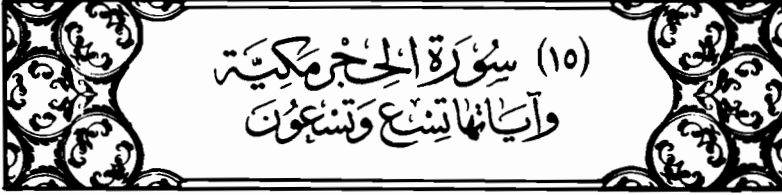 (١٥) سُورَةُ الحِجْرِ مَكِيَّة
وَآيَاتها تِسْع وَتِسْعُونَ